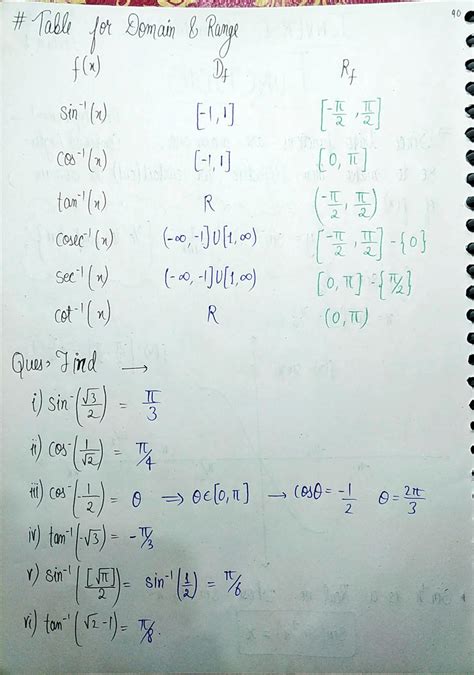 40
# Table for Domain & Range
f(x) D_f R_f
sin⁻¹(x) [-1,1] [-π/2, π/2]
cos⁻¹(x) [-1,1] [0, π]
tan⁻¹(x) R (-π/2, π/2)
cosec⁻¹(x) (-∞,-1]U[1,∞) [-π/2, π/2]-{0}
sec⁻¹(x) (-∞,-1]U[1,∞) [0, π]-{π/2}
cot⁻¹(x) R (0, π)
Ques> Find →
i) sin⁻(√3/2) = π/3
ii) cos⁻(1/√2) = π/4
iii) cos⁻(-1/2) = θ → θ∈[0, π] → cosθ = -1/2 θ = 2π/3
iv) tan⁻¹(-√3) = -π/3
v) sin⁻¹([√π]/2) = sin⁻¹(1/2) = π/6
vi) tan⁻¹(√2-1) = π/8.